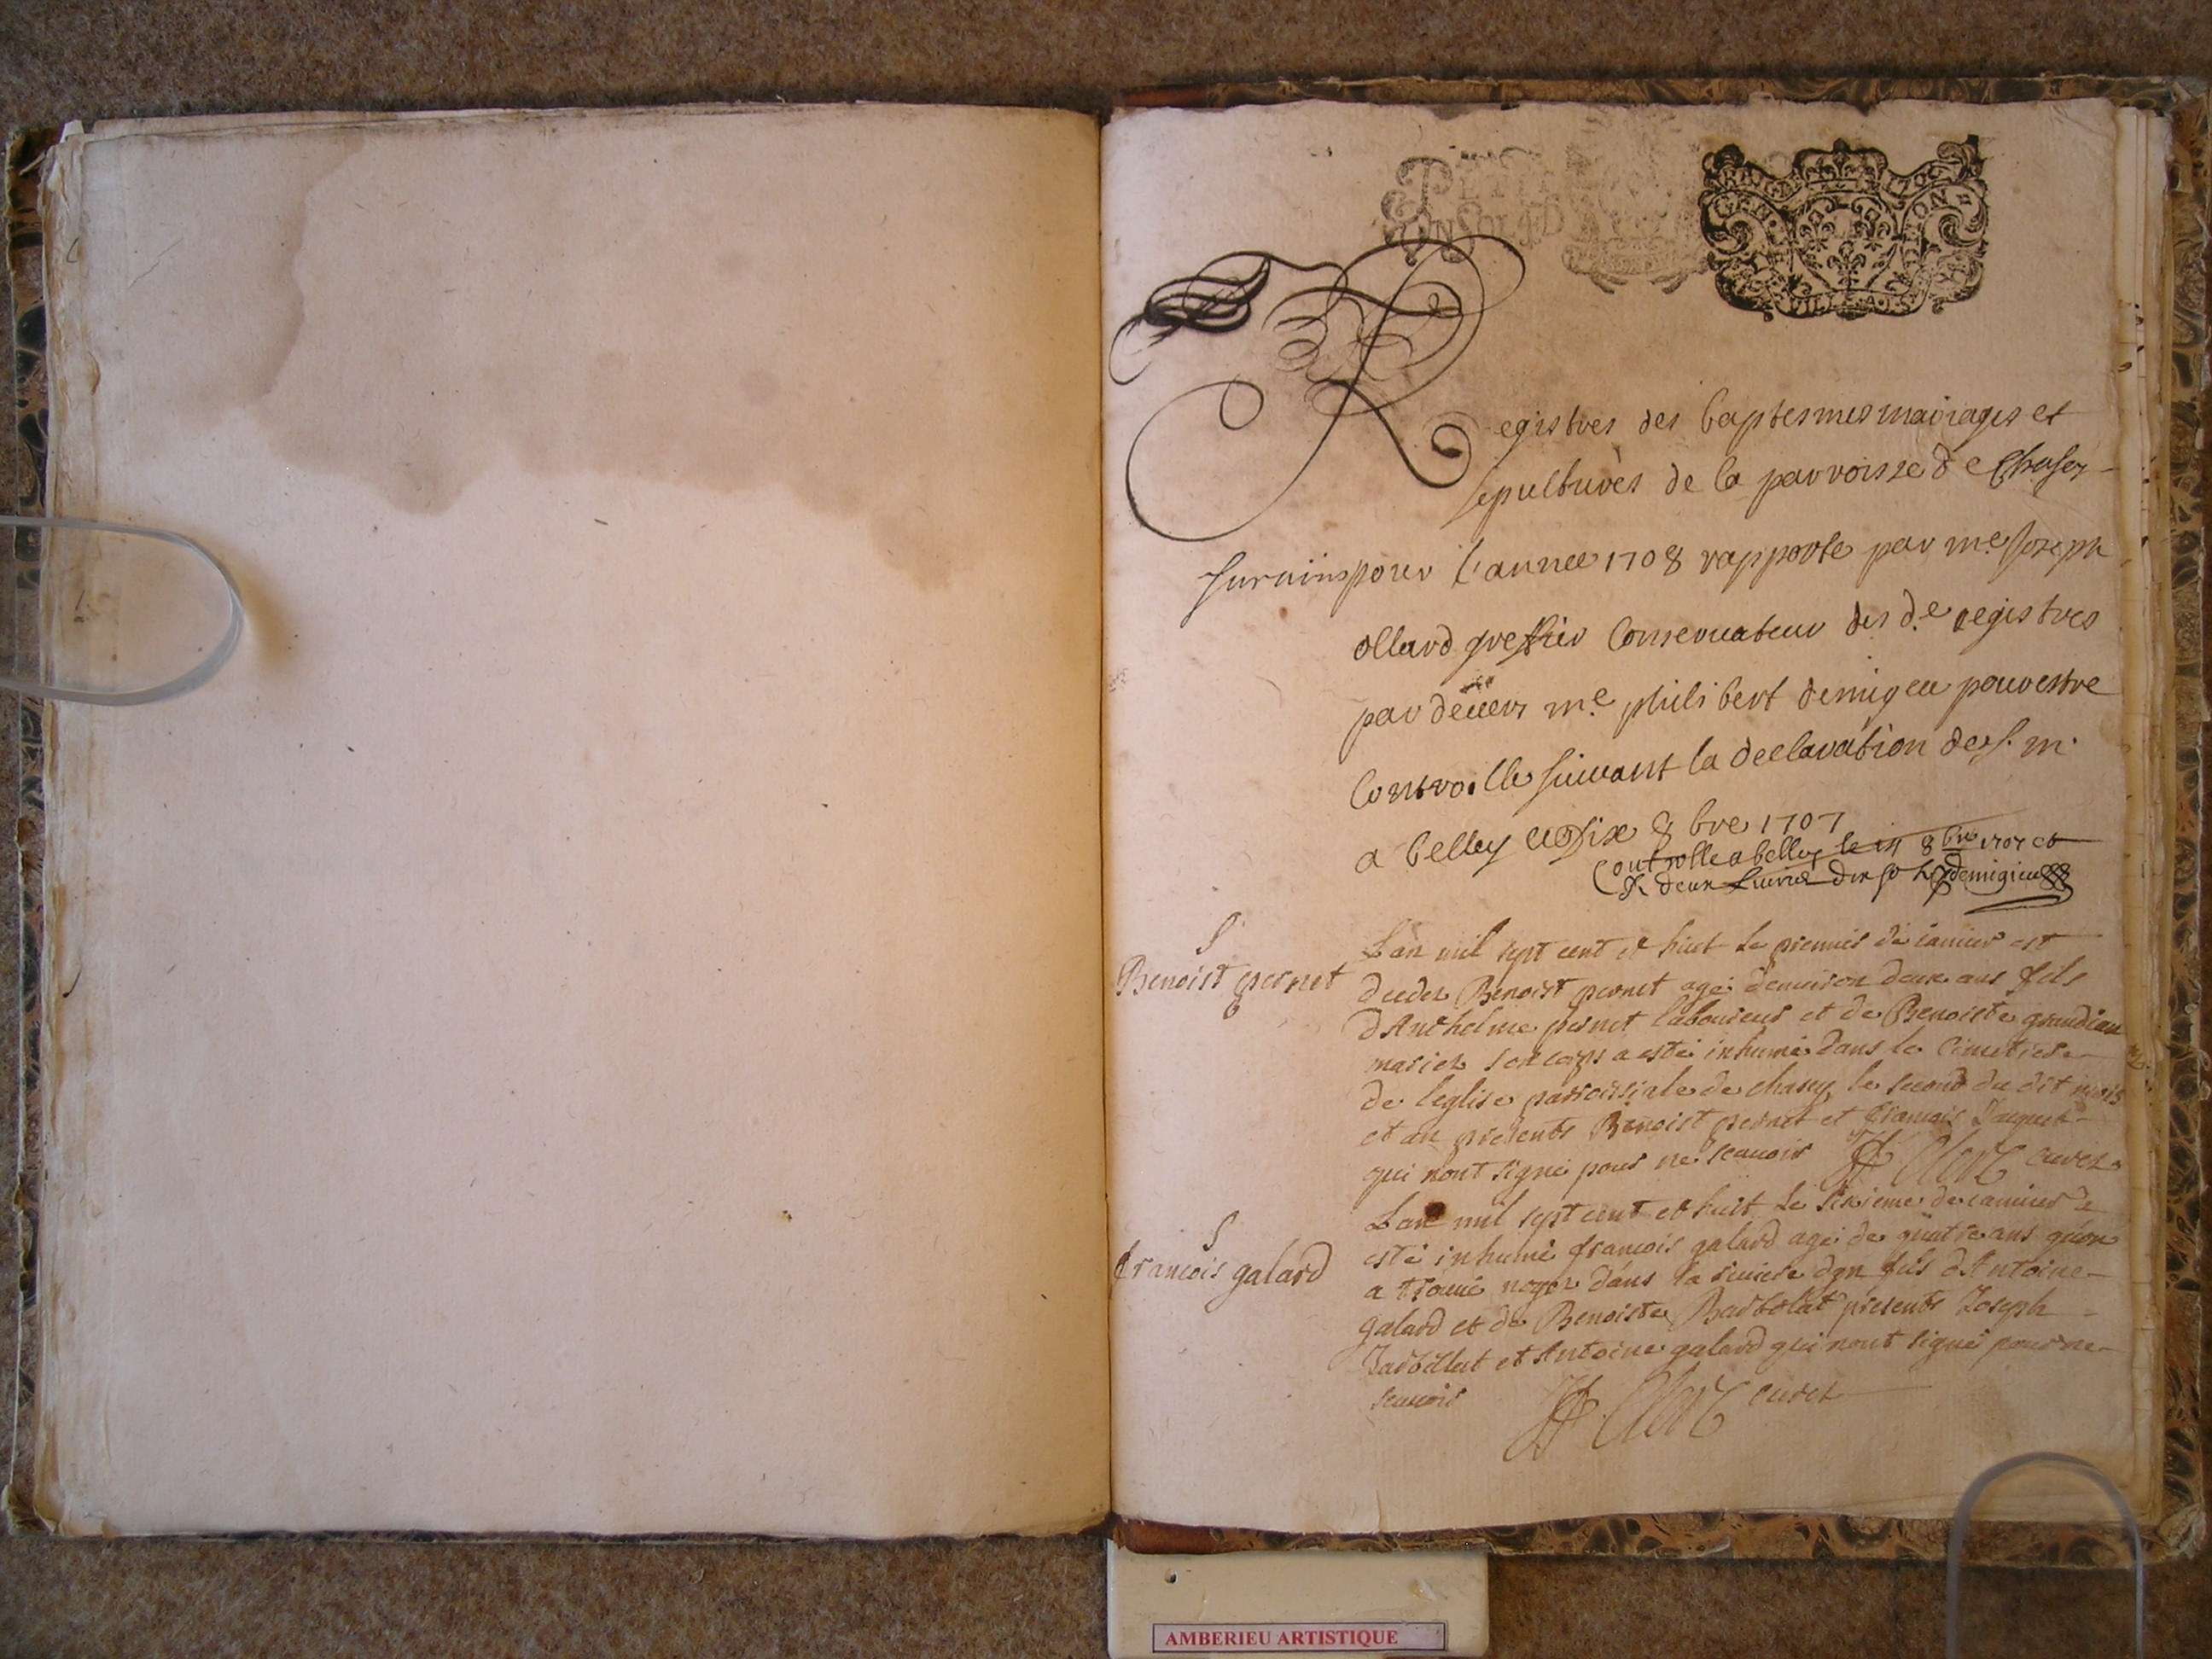 GEN ON
Registres des baptesmes mariages et
sepultures de la parroisse de Chasey
pour l'annee 1708 rapporte par me Joseph
ollard greffier Conservateur des d.e registres
par devers me philibert demigeu pour estre
Controlle suivant la declaration de s. m.
a belley ce dix 8bre 1707
Controlle a belley le 8bre 1707 et
deux Livres dix s demigieu
S
Benoist pernet
Lan mil sept cent et huit le premie de ianvier est
decedez Benoist pernet agé denviron deux ans fils
dAnthelme pernet laboureur et de Benoiste grandian
mariez son corps a esté inhumé dans le Cimetiere
de leglise parroissiale de chasey le second du dit mois
et an presents Benoist pernet et francois Jaquet
qui nont signé pour ne scavoir curez
S
francois galard
Lan mil sept cent et huit le sixieme de ianvier a
esté inhumé francois galard agé de quatre ans quon
a trouué noyez dans la riuiere dain fils dAntoine
galard et de Benoiste Barbolat presents Joseph
et Antoine galard qui nont signé pour ne
scavoir curez
AMBERIEU ARTISTIQUE